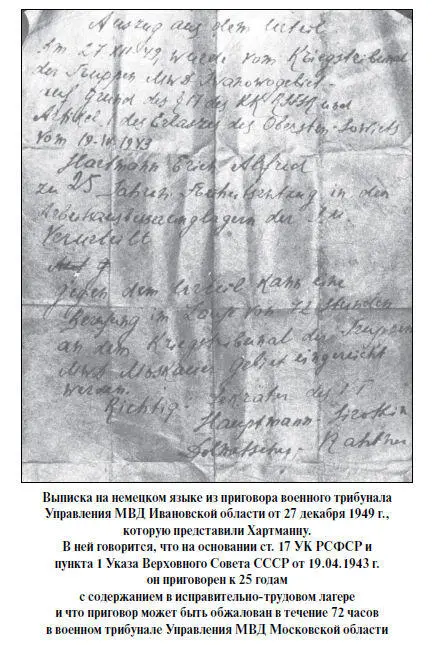 Auszug aus dem Urteil
Am 27 XII 49, wurde vom Kriegstribunal
der Truppen MWD Iwanowogebiet
auf Grund des § 17 des KK und
Artikel 1 des Erlasses des Obersten Sowjets
vom 19-IV-1943
Hartmann Erich Alfred
zu 25 Jahren Freiheitsentzug in den
Arbeitsbesserungslagern der
Verurteilt
gegen dem Urteil kann eine
Berufung im Laufe von 72 Stunden
an dem Kriegstribunal der Truppen
MWD Moskauer Gebiet eingereicht
werden.
Richtig: Sekretär des
Hauptmann Sirotkin
Dolmetscher
Выписка на немецком языке из приговора военного трибунала
Управления МВД Ивановской области от 27 декабря 1949 г.,
которую представили Хартманну.
В ней говорится, что на основании ст. 17 УК РСФСР и
пункта 1 Указа Верховного Совета СССР от 19.04.1943 г.
он приговорен к 25 годам
с содержанием в исправительно-трудовом лагере
и что приговор может быть обжалован в течение 72 часов
в военном трибунале Управления МВД Московской области